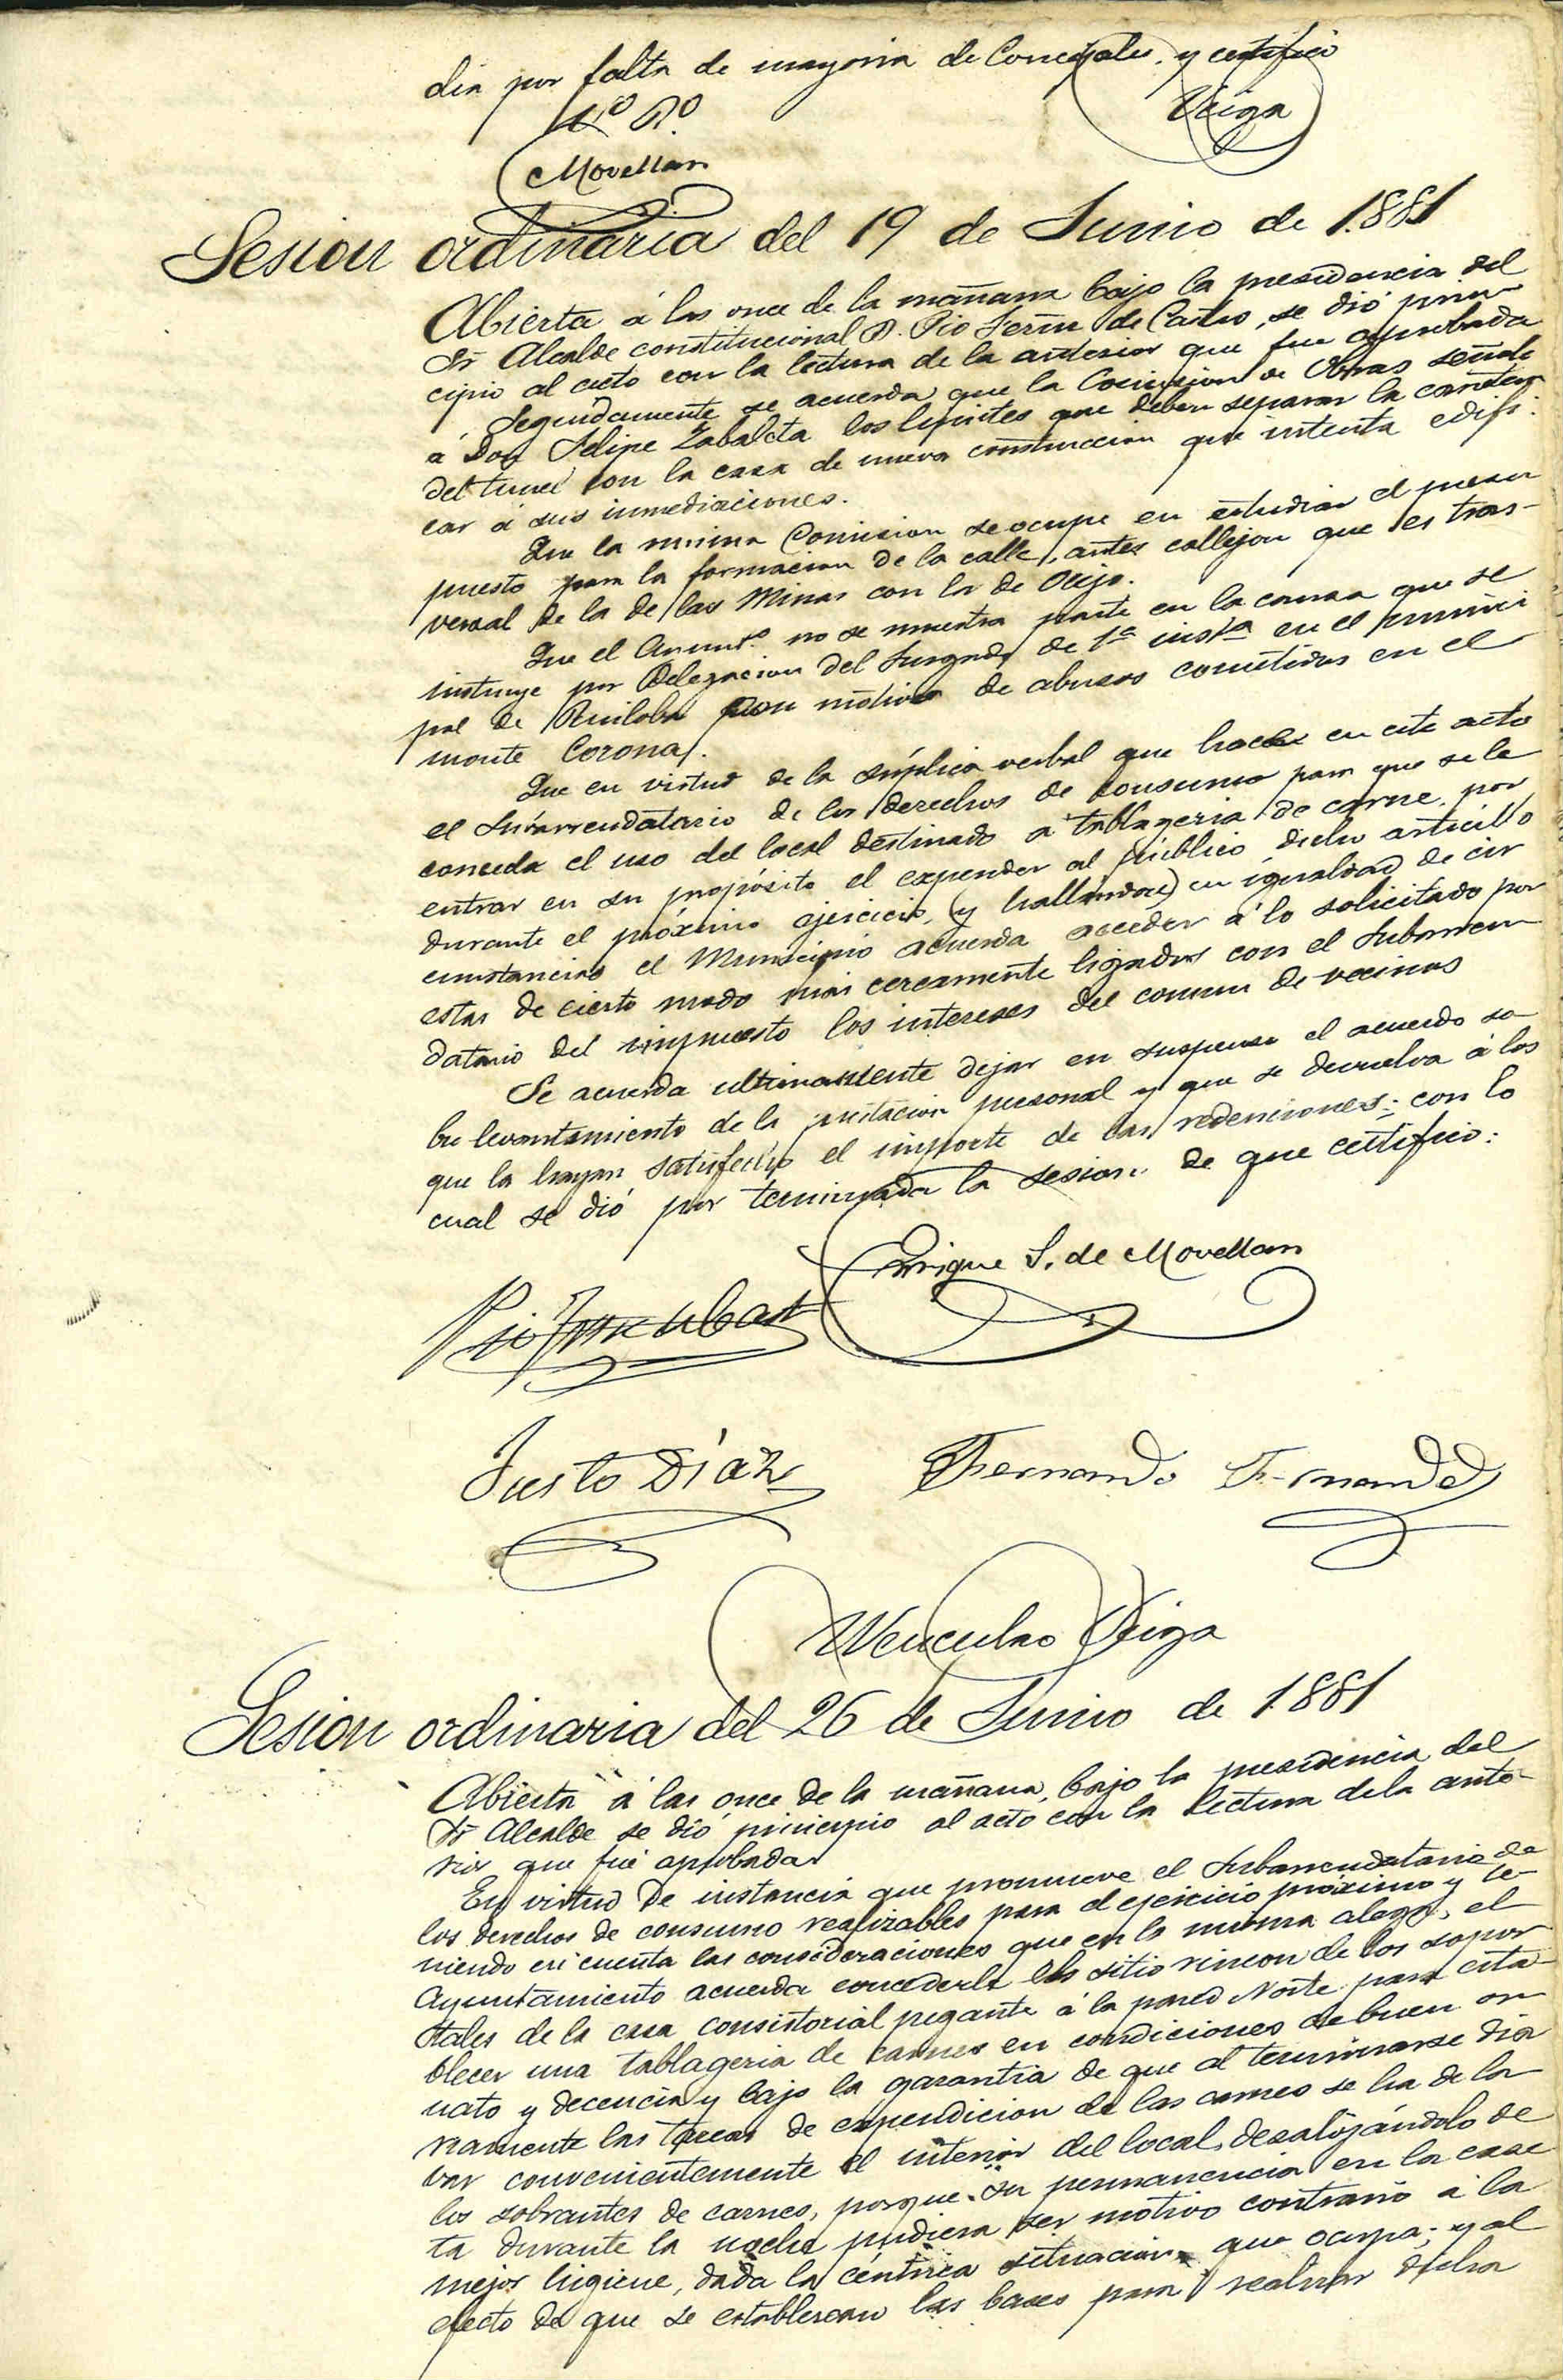 dia por falta de mayoria de Concejales, y certifico
Vº Bº
Veiga
Movellan
Sesion ordinaria del 19 de Junio de 1.881
Abierta á las once de la mañana bajo la presidencia del
Sr Alcalde constitucional D. Pio Fern de Castro, se dió prin-
cipio al acto con la lectura de la anterior que fue aprobada
Seguidamente se acuerda que la Comision de Obras señale
á Don Felipe Zabaleta los limites que deben separar la carretera
del tunel con la casa de nueva construccion que intenta edifi-
car á sus inmediaciones.
Que la misma Comision se ocupe en estudiar el presu
puesto para la formacion de la calle, antes callejon que es tras-
versal de la de las Minas con la de Ocejo.
Que el Ayuntº no se muestra parte en la causa que se
instruye por Delegacion del Juzgado de 1ª instª en el munici
pal de Ruiloba con motivo de abusos cometidos en el
monte Corona.
Que en virtud de la súplica verbal que hace en este acto
el subarrendatario de los derechos de consumo para que se le
conceda el uso del local destinado a tablageria de carne, por
entrar en su propósito el expender al público dicho articulo
durante el próximo ejercicio, (y hallándose) en igualdad de cir
cunstancias el Municipio acuerda acceder á lo solicitado por
estar de cierto modo mas cercamente ligados con el Subarren
datario del impuesto los intereses del comun de vecinos
Se acuerda ultimamente dejar en suspenso el acuerdo so-
bre levantamiento de la prestacion personal y que se devuelva á los
que la hayan satisfecho el importe de las redenciones: con lo
cual se dió por terminada la sesion de que certifico:
Enrique S. de Movellan
Pio Fern de Castro
Justo Diaz Fernando Fernandez
Wenceslao Veiga
Sesion ordinaria del 26 de Junio de 1881
Abierta á las once de la mañana, bajo la presidencia del
Sr Alcalde se dió principio al acto con la lectura de la ante-
rior que fué aprobada
En virtud de instancia que promueve el Subarrendatario de
los derechos de consumo realizables para el ejercicio próximo y te-
niendo en cuenta las consideraciones que en la misma alega, el
Ayuntamiento acuerda concederle el sitio rincon de los sopor
tales de la casa consistorial pegante á la pared Norte para esta-
blecer una tablageria de carnes en condiciones de buen or
nato y decencia y bajo la garantia de que al terminarse dia
riamente las tareas de expendicion de las carnes se ha de la
var convenientemente el interior del local, desalojándolo de
los sobrantes de carnes, porque su permanencia en la case
ta durante la noche pudiera ser motivo contrario á la
mejor higiene, dada la céntrica situacion que ocupa; y al
efecto de que se establezcan las bases para realizar dicha